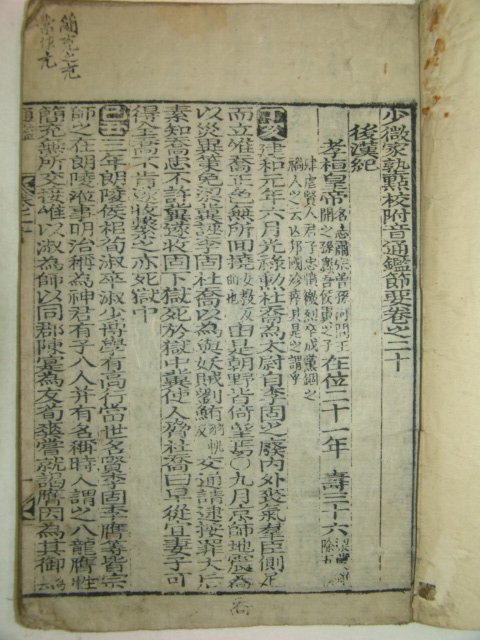 少微家塾點校附音通鑑節要卷之二十
後漢紀
孝桓皇帝 名志肅宗曾孫河間王開之孫蠡吾侯翼之子 在位二十一年 壽三十六
肆虐賢人君子忠憤激烈卒成黨錮之禍人之云亡邦國殄瘁其是之謂乎
丁亥 建和元年六月光祿勳杜喬為太尉自李固之廢內外喪氣羣臣側足
而立惟喬正色無所回撓 女敎反 由是朝野皆倚望焉○九月京師地震喬
以災異策免 李固杜喬以為與妖賊劉鮪 交通請逮按罪太后
素知喬忠不許冀遂收固下獄死於獄中冀使人脅杜喬曰早從宜妻子可
得全喬不肯遂收繫之亦死獄中
己丑 三年朗陵侯相荀淑卒淑少博學有高行當世名賢李固李膺等皆宗
師之在朗陵涖事明治稱為神君有子八人并有名稱時人謂之八龍膺性
簡亢無所交接惟以淑為師以同郡陳寔為友荀爽嘗就謁膺因為其御